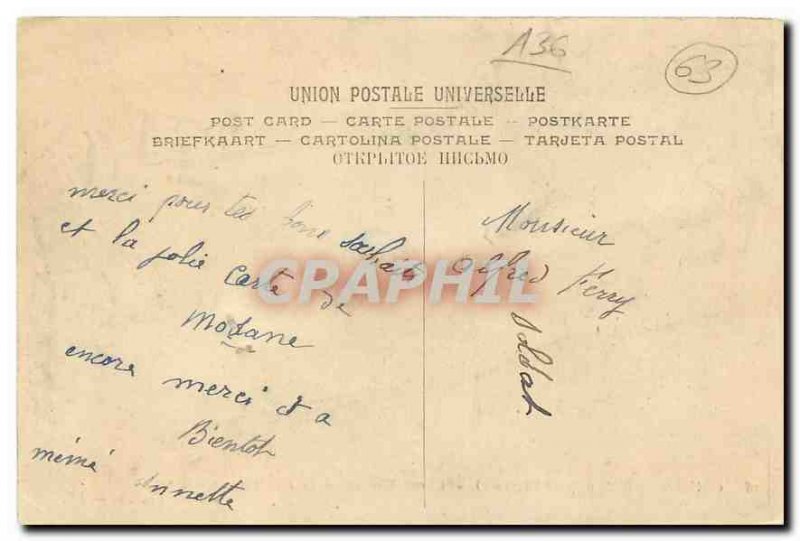 A36
63
UNION POSTALE UNIVERSELLE
POST CARD — CARTE POSTALE — POSTKARTE
BRIEFKAART — CARTOLINA POSTALE — TARJETA POSTAL
ОТКРЫТОЕ ПИСЬМО
merci pour tes bons souhaits
et la jolie carte de
Modane
encore merci et a
Bientot
mémé Annette
Monsieur
Alfred Ferry
soldat
CPAPHIL